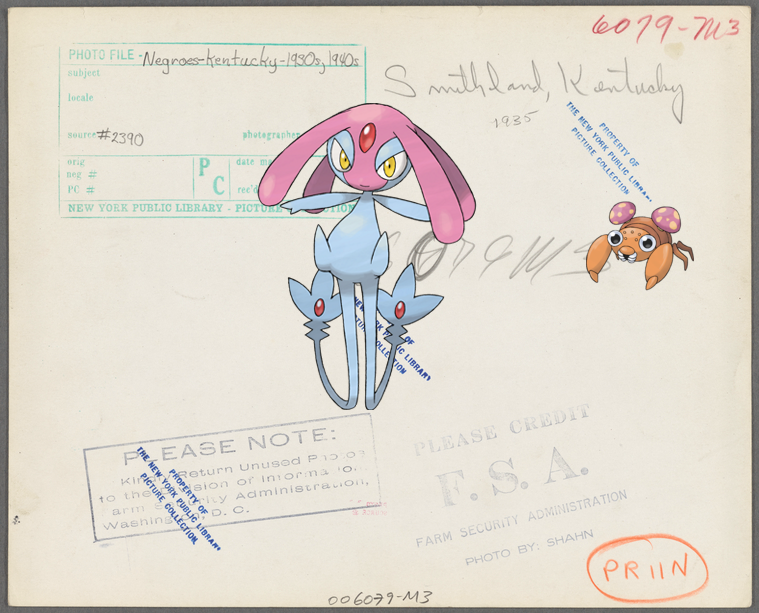 6079-M3
PHOTO FILE - Negroes-Kentucky-1930s, 1940s
subject
locale
source #2390 photographer
orig
neg #
PC #
PC
date
rec'd
NEW YORK PUBLIC LIBRARY - PICTURE COLLECTION
Smithland, Kentucky
1935
PROPERTY OF
THE NEW YORK PUBLIC LIBRARY
PICTURE COLLECTION
6079M3
NEW YORK PUBLIC LIBRARY
OF
COLLECTION
PLEASE NOTE:
Return Unused
to the of
Administration,
D. C.
PROPERTY OF
THE NEW YORK PUBLIC LIBRARY
PICTURE COLLECTION
PLEASE CREDIT
F. S. A.
FARM SECURITY ADMINISTRATION
PHOTO BY: SHAHN
PR11N
006079-M3